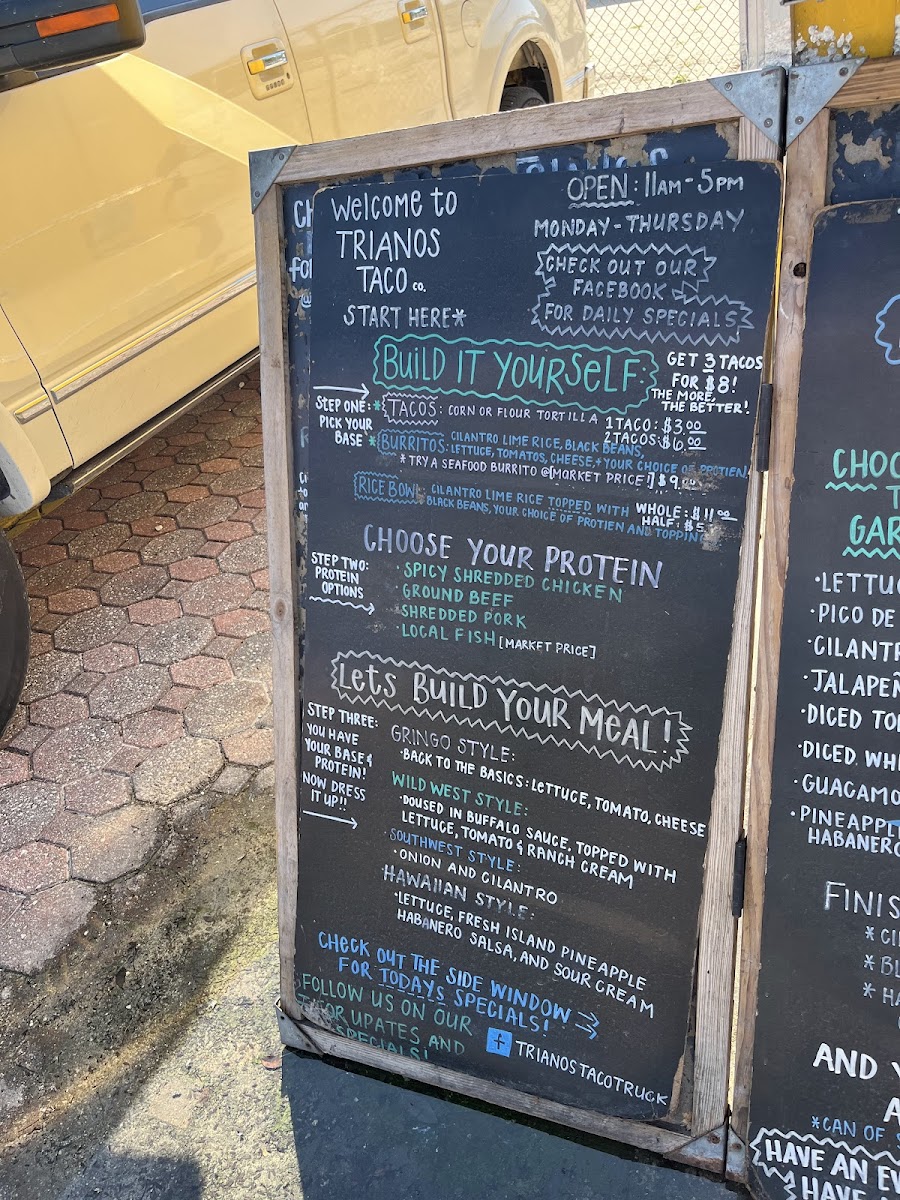 Welcome to
TRIANOS
TACO co.
START HERE*
OPEN: 11AM-5PM
MONDAY-THURSDAY
CHECK OUT OUR
FACEBOOK
FOR DAILY SPECIALS
BUILD IT YOURSELF:
GET 3 TACOS
FOR $8!
THE MORE,
THE BETTER!
STEP ONE:
PICK YOUR
BASE
*TACOS: CORN OR FLOUR TORTILLA
1 TACO: $3.00
2 TACOS: $6.00
*BURRITOS: CILANTRO LIME RICE, BLACK BEANS,
LETTUCE, TOMATOS, CHEESE, + YOUR CHOICE OF PROTIEN
*TRY A SEAFOOD BURRITO @[MARKET PRICE!] $9.
RICE BOWL CILANTRO LIME RICE TOPPED WITH
BLACK BEANS, YOUR CHOICE OF PROTIEN AND TOPPIN
WHOLE: $11.00
HALF: $5
CHOOSE YOUR PROTEIN
STEP TWO:
PROTEIN
OPTIONS
·SPICY SHREDDED CHICKEN
·GROUND BEEF
·SHREDDED PORK
·LOCAL FISH [MARKET PRICE]
Lets BUILD YOUR MEAL!
STEP THREE:
YOU HAVE
YOUR BASE &
PROTEIN!
NOW DRESS
IT UP!!
GRINGO STYLE:
·BACK TO THE BASICS: LETTUCE, TOMATO, CHEESE
WILD WEST STYLE:
·DOUSED IN BUFFALO SAUCE, TOPPED WITH
LETTUCE, TOMATO & RANCH CREAM
SOUTHWEST STYLE:
·ONION AND CILANTRO
HAWAIIAN STYLE:
·LETTUCE, FRESH ISLAND PINEAPPLE
HABANERO SALSA, AND SOUR CREAM
CHECK OUT THE SIDE WINDOW
FOR TODAYS SPECIALS!
FOLLOW US ON OUR
FOR UPATES AND
SPECIALS!
f TRIANOSTACOTRUCK
·LETTUC
·PICO DE
·CILANTR
·JALAPEÑ
·DICED TO
·DICED WH
·GUACAMO
·PINEAPPLE
HABANERO
FINIS
AND
*CAN OF
HAVE AN EV
HAVE